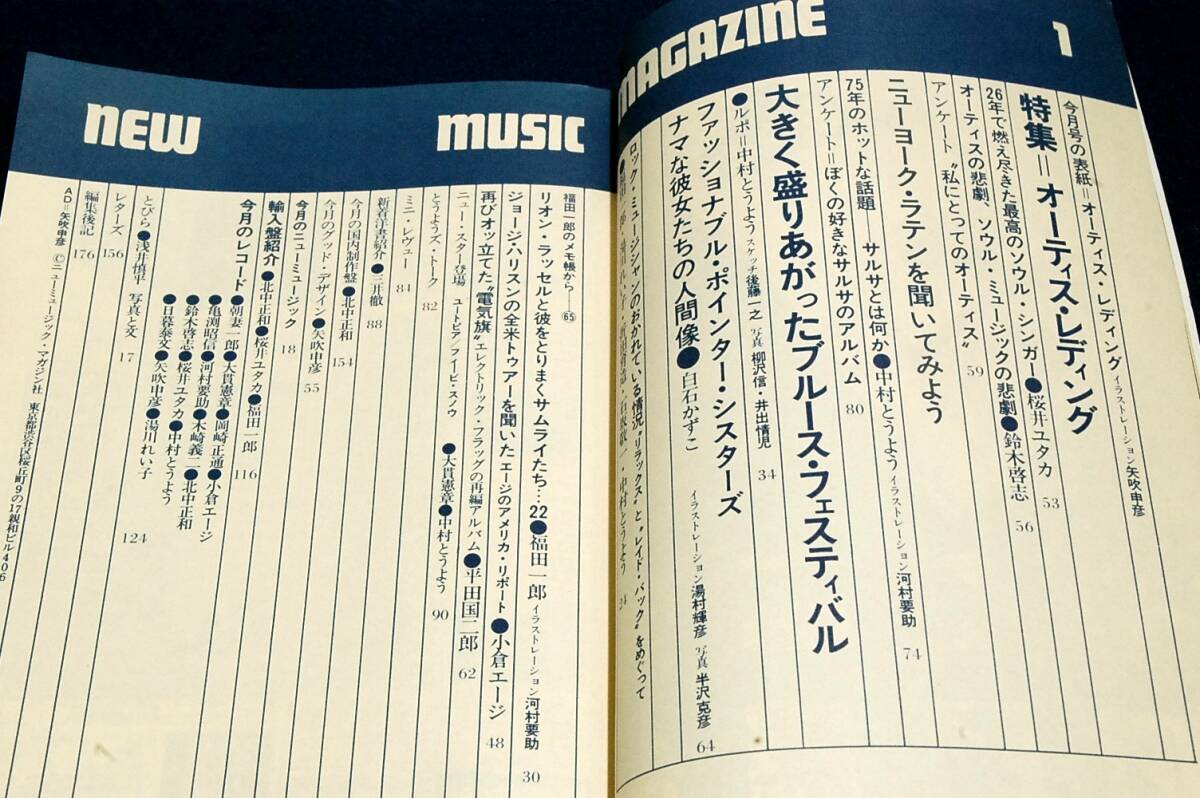 NEW MUSIC MAGAZINE 1
今月号の表紙＝オーティス・レディング イラストレーション矢吹申彦
特集＝オーティス・レディング
26年で燃え尽きた最高のソウル・シンガー●桜井ユタカ 53
オーティスの悲劇、ソウル・ミュージックの悲劇●鈴木啓志 56
アンケート〝私にとってのオーティス〟 59
ニューヨーク・ラテンを聞いてみよう
75年のホットな話題──サルサとは何か●中村とうよう イラストレーション河村要助 74
アンケート＝ぼくの好きなサルサのアルバム 80
大きく盛りあがったブルース・フェスティバル
●ルポ＝中村とうよう スケッチ後藤一之 写真 柳沢信・井出情児 34
ファッショナブル・ポインター・シスターズ
ナマな彼女たちの人間像●白石かずこ イラストレーション湯村輝彦 写真 半沢克彦 64
ロック・ミュージシャンのおかれている情況〝リラックス〟と〝レイド・バック〟をめぐって
中村とうよう
福田一郎のメモ帳から──65
リオン・ラッセルと彼をとりまくサムライたち…22●福田一郎 イラストレーション河村要助 30
ジョージ・ハリスンの全米トゥアーを聞いた エージのアメリカ・リポート●小倉エージ 48
再びオッ立てた〝電気旗〟エレクトリック・フラッグの再編アルバム●平田国二郎 62
ニュー・スター登場 ユートピア/フィービ・スノウ ●大貫憲章●中村とうよう 90
とうようズ・トーク 82
ミニ・レヴュー 84
新着洋書紹介●三井徹 88
今月の国内制作盤●北中正和 154
今月のグッド・デザイン●矢吹申彦 55
今月のニューミュージック 18
輸入盤紹介●北中正和●桜井ユタカ●福田一郎 116
今月のレコード●朝妻一郎●大貫憲章●岡崎正通●小倉エージ
●亀渕昭信●河村要助●木崎義二●北中正和
●鈴木啓志●桜井ユタカ●中村とうよう
●日暮泰文●矢吹申彦●湯川れい子 124
とびら●浅井慎平 写真と文 17
レターズ 156
編集後記 176
AD＝矢吹申彦 ©ニューミュージック・マガジン社 東京都渋谷区桜丘町9の17親和ビル406